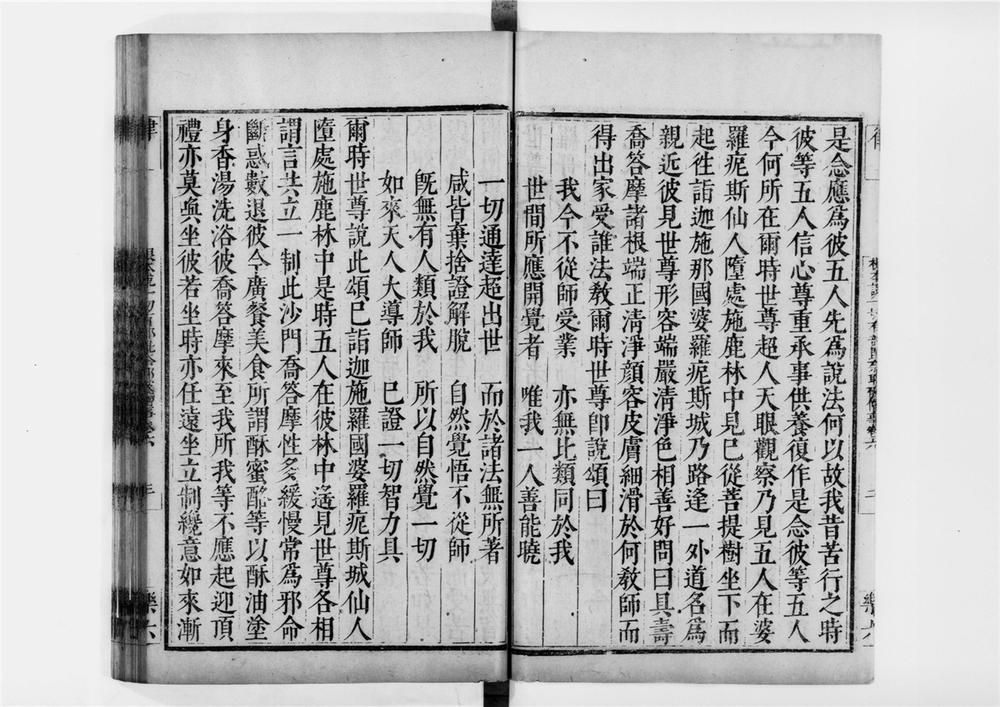 是念應爲彼五人先爲說法何以故我昔苦行之時
彼等五人信心尊重承事供養復作是念彼等五人
今何所在爾時世尊超人天眼觀察乃見五人在婆
羅疪斯仙人墮處施鹿林中見已從菩提樹坐下而
起徃詣迦施那國婆羅疪斯城乃路逢一外道名爲
親近彼見世尊形容端嚴清淨色相善好問曰具壽
喬答摩諸根端正清淨顏容皮膚細滑於何教師而
得出家受誰法教爾時世尊卽說頌曰
我今不從師受業 亦無比類同於我
世間所應開覺者 唯我一人善能曉
一切通達超出世 而於諸法無所著
咸皆棄捨證解脫 自然覺悟不從師
旣無有人類於我 所以自然覺一切
如來天人大導師 已證一切智力具
爾時世尊說此頌已詣迦施羅國婆羅疪斯城仙人
墮處施鹿林中是時五人在彼林中遙見世尊各相
謂言共立一制此沙門喬答摩性多緩慢常爲邪命
斷惑數退彼今廣餐美食所謂酥蜜酪等以酥油塗
身香湯洗浴彼喬答摩來至我所我等不應起迎頂
禮亦莫與坐彼若坐時亦任遠坐立制纔意如來漸
律
樂六